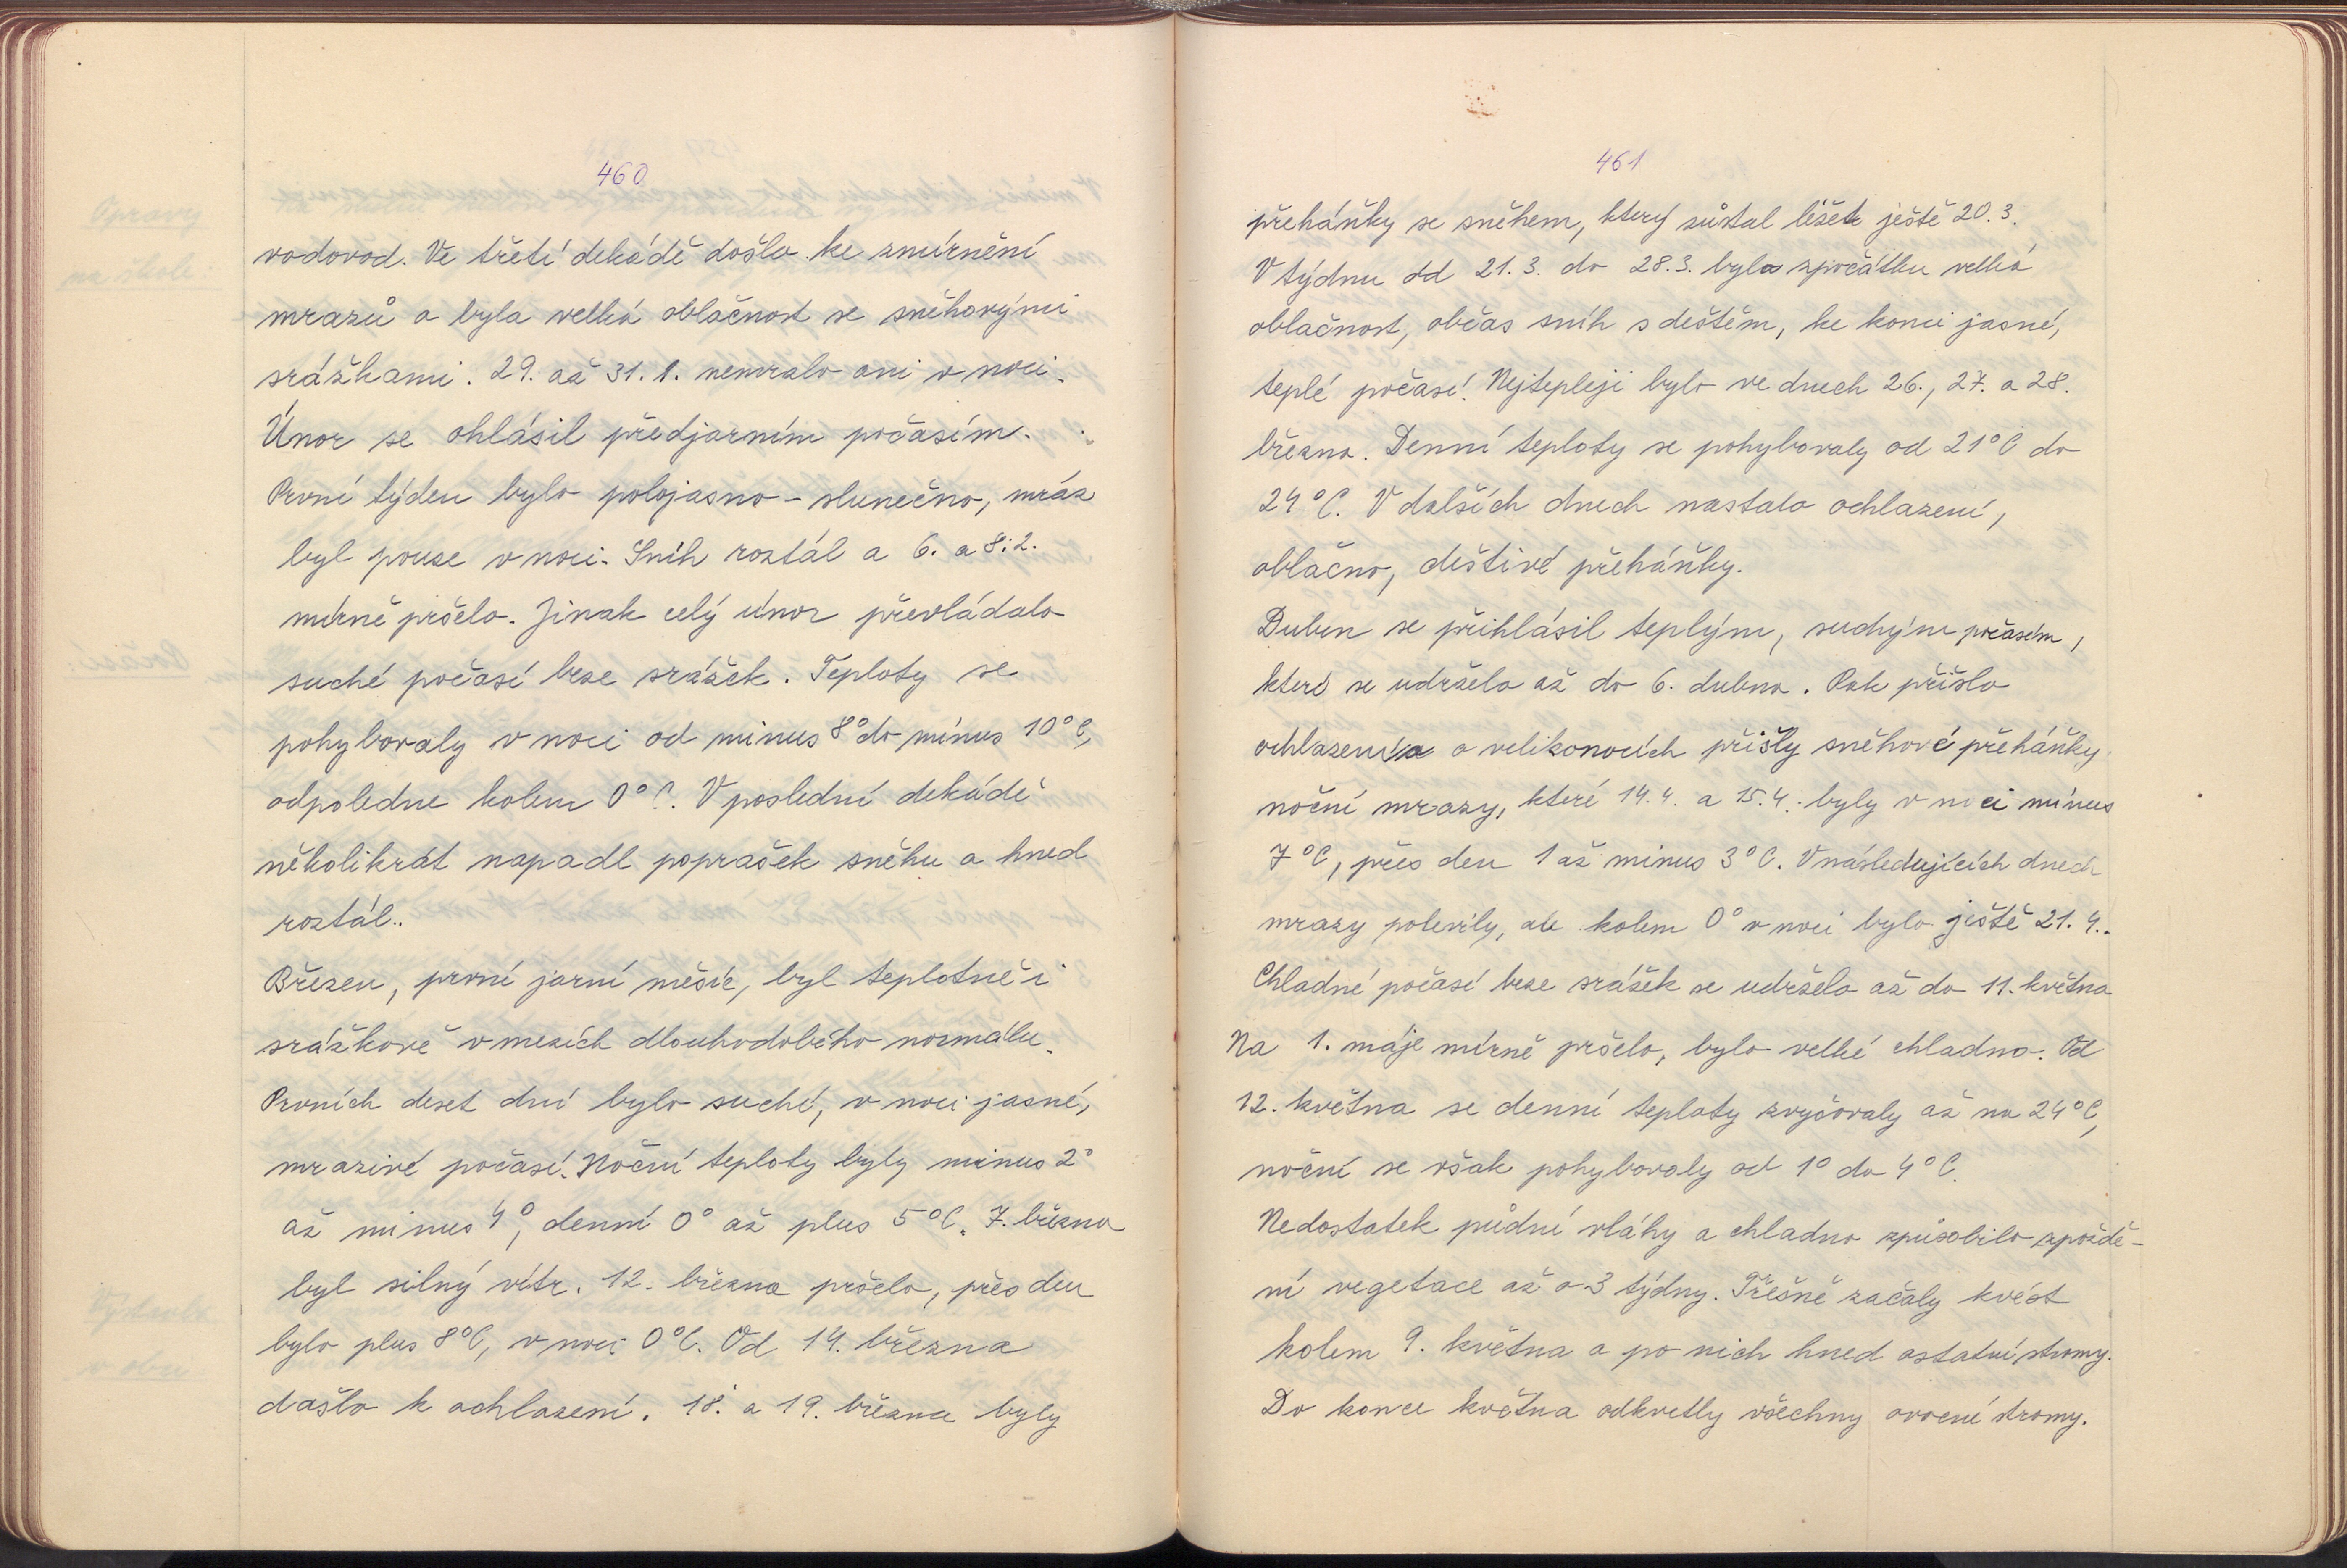 460
vodovod. Ve třetí dekádě došlo ke zmírnění
mrazů a byla velká oblačnost se sněhovými
srážkami. 29. až 31. 1. nemrzlo ani v noci.
Únor se ohlásil předjarním počasím.
První týden bylo polojasno - slunečno, mráz
byl pouze v noci. Sníh roztál a 6. a 8. 2.
mírně pršelo. Jinak celý únor převládalo
suché počasí beze srážek. Teploty se
pohybovaly v noci od minus 8° do minus 10°C,
odpoledne kolem 0°C. V poslední dekádě
několikrát napadl poprašek sněhu a hned
roztál..
Březen, první jarní měsíc, byl teplotně i
srážkově v mezích dlouhodobého normálu.
Prvních deset dní bylo suché, v noci jasné,
mrazivé počasí. Noční teploty byly minus 2°
až minus 4°, denní 0° až plus 5°C. 7. března
byl silný vítr. 12. března pršelo, přes den
bylo plus 8°C, v noci 0°C. Od 14. března
došlo k ochlazení. 18. a 19. března byly
461
přeháňky se sněhem, který zůstal ležet ještě 20. 3.
V týdnu od 21. 3. do 28. 3. byla zpočátku velká
oblačnost, občas sníh s deštěm, ke konci jasné,
teplé počasí. Nejtepleji bylo ve dnech 26., 27. a 28.
března. Denní teploty se pohybovaly od 21°C do
24°C. V dalších dnech nastalo ochlazení,
oblačno, deštivé přeháňky.
Duben se přihlásil teplým, suchým počasím,
které se udrželo až do 6. dubna. Pak přišlo
ochlazení a o velikonocích přišly sněhové přeháňky
noční mrazy, které 14. 4. a 15. 4. byly v noci minus
7°C, přes den 1 až minus 3°C. V následujících dnech
mrazy polevily, ale kolem 0° v noci bylo ještě 21. 4..
Chladné počasí beze srážek se udrželo až do 11. května
Na 1. máje mírně pršelo, bylo velké chladno. Od
12. května se denní teploty zvyšovaly až na 24°C,
noční se však pohybovaly od 1° do 4°C.
Nedostatek půdní vláhy a chladno způsobilo zpoždě-
ní vegetace až o 3 týdny. Třešně začaly kvést
kolem 9. května a po nich hned ostatní stromy.
Do konce května odkvetly všechny ovocné stromy.